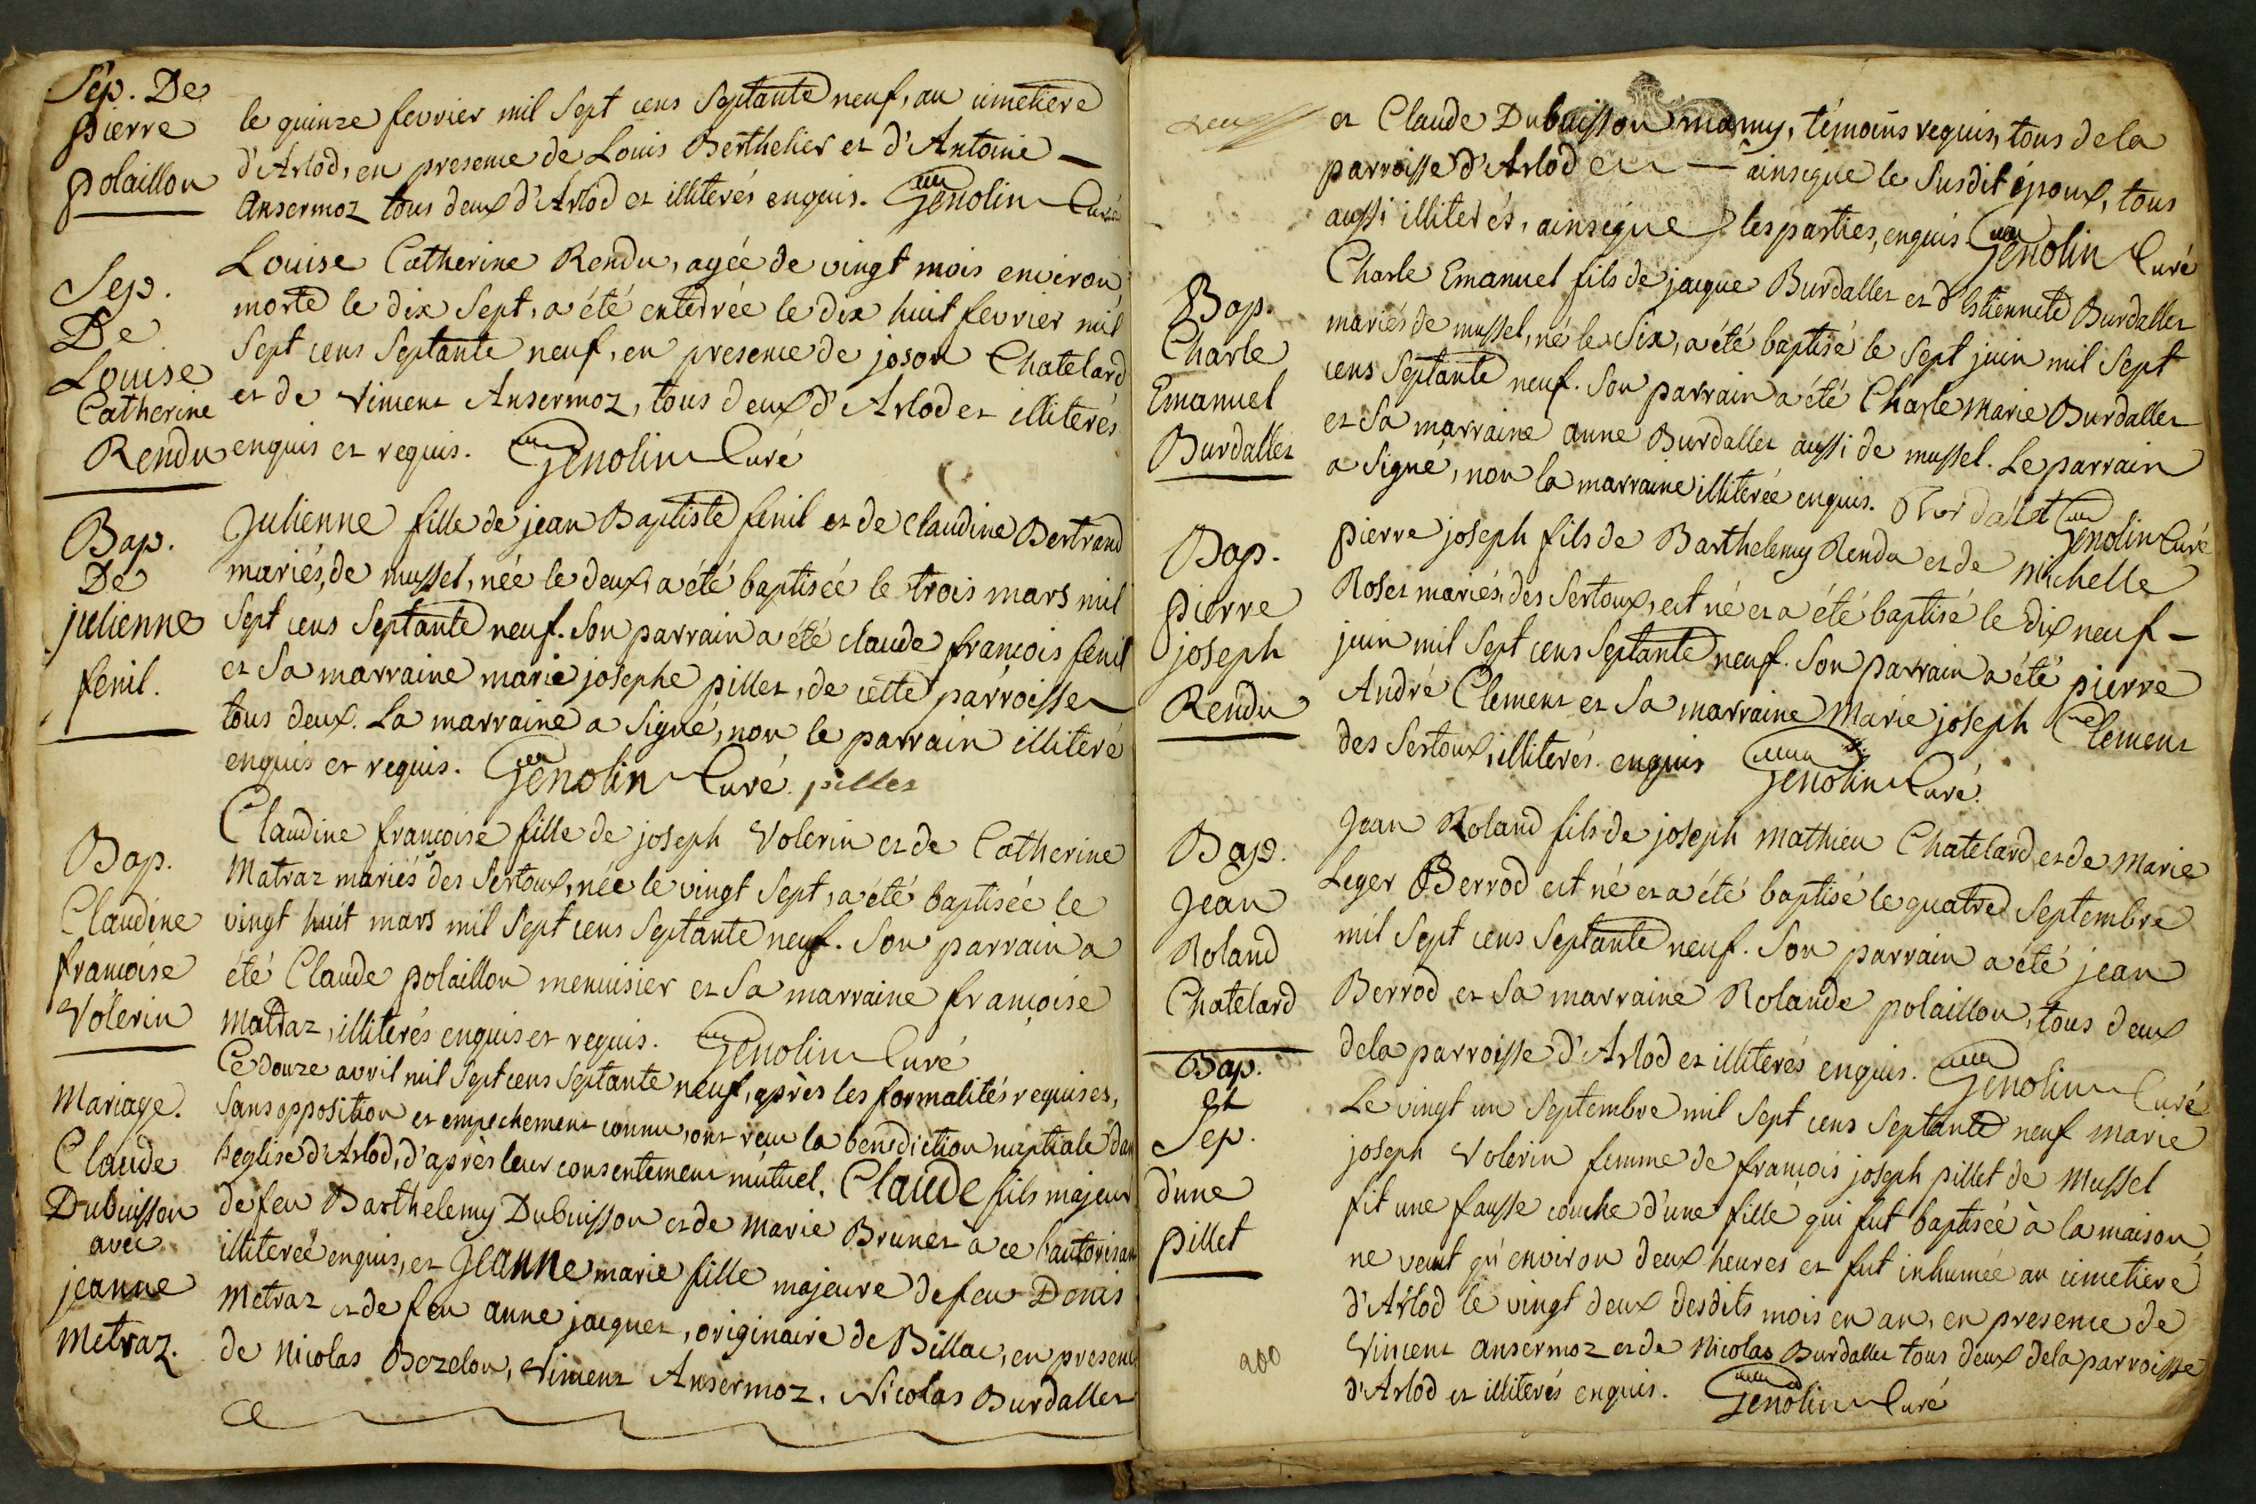 Sép. De
pierre
polaillon
le quinze fevrier mil Sept cens Septante neuf, au cimetiere
d'Arlod, en presence de Louis Berthelier et d'Antoine —
Ansermoz tous deux d'Arlod et illiterés enquis. Genolin Curé
Sep.
De
Louise
Catherine
Rendu
Louise Catherine Rendu, agée de vingt mois environ
morte le dix Sept, a été enterrée le dix huit fevrier mil
Sept cens Septante neuf, en presence de joson Chatelard
et de Vincent Ansermoz, tous deux d'Arlod et illiterés
enquis et requis. Genolin Curé
Bap.
De
julienne
fenil.
Julienne fille de jean Baptiste fenil et de Claudine Bertrand
mariés, de mussel, née le deux, a été baptisée le trois mars mil
Sept cens Septante neuf. Son parrain a été claude françois fenil
et Sa marraine marie josephe pillet, de cette parroisse
tous deux. La marraine a Signé, non le parrain illiteré
enquis et requis. Genolin Curé. pillet
Bap.
Claudine
françoise
Volerin
Claudine françoise fille de joseph Volerin et de Catherine
Matraz mariés des Sertoux, née le vingt Sept, a été baptisée le
vingt huit mars mil Sept cens Septante neuf. Son parrain a
été Claude polaillon menuisier et Sa marraine françoise
Matraz, illiterés enquis et requis. Genolin Curé
Mariage.
Claude
Dubuisson
avec
jeanne
Metraz.
Ce douze avril mil Sept cens Septante neuf, après les formalités requises,
Sans opposition et empechement connu, ont recu la benediction nuptiale dan
l'eglise d'Arlod, d'après leur consentement mutuel, Claude fils majeur
de feu Barthelemy Dubuisson et de marie Brunet à ce l'autorisant
illiterée enquis, et Jeanne marie fille majeure de feu Denis
Metraz et de feu anne jacquet, originaire de Billac, en presence
de Nicolas Bozelon, Vincent Ansermoz, Nicolas Burdallet
et Claude Dubuisson mamy, témoins requis, tous de la
parroisse d'Arlod — ainsique le Susdit époux, tous
aussi illiterés, ainsique les parties, enquis. Genolin Curé
Bap.
Charle
Emanuel
Burdallet
Charle Emanuel fils de jacque Burdallet et d'Estiennete Burdallet
mariés de mussel, né le Six, a été baptisé le Sept juin mil Sept
cens Septante neuf. Son parrain a été Charle Marie Burdallet
et Sa marraine anne Burdallet aussi de mussel. Le parrain
a Signé, non la marraine illiterée enquis. Burdalet Genolin Curé
Bap.
pierre
joseph
Rendu
pierre joseph fils de Barthelemy Rendu et de michelle
Roset mariés, des Sertoux, est né et a été baptisé le dix neuf —
juin mil Sept cens Septante neuf. Son parrain a été pierre
André Clement et Sa marraine Marie joseph Clement
des Sertoux, illiterés enquis Genolin Curé.
Bap.
Jean
Roland
Chatelard
Jean Roland fils de joseph Mathieu Chatelard et de Marie
Leger Berrod est né et a été baptisé le quatre Septembre
mil Sept cens Septante neuf. Son parrain a été jean
Berrod et Sa marraine Rolande polaillon, tous deux
dela parroisse d'Arlod et illiterés enquis. Genolin Curé
Bap.
et
Sep.
d'une
pillet
Le vingt un Septembre mil Sept cens Septante neuf marie
joseph Volerin femme de françois joseph pillet de Mussel
fit une fausse couche d'une fille qui fut baptisée à la maison,
ne vecut qu'environ deux heures et fut inhumée au cimetiere
d'Arlod le vingt deux desdits mois en an, en presence de
Vincent Ansermoz et de Nicolas Burdallet tous deux dela parroisse
d'Arlod et illiterés enquis. Genolin Curé
200